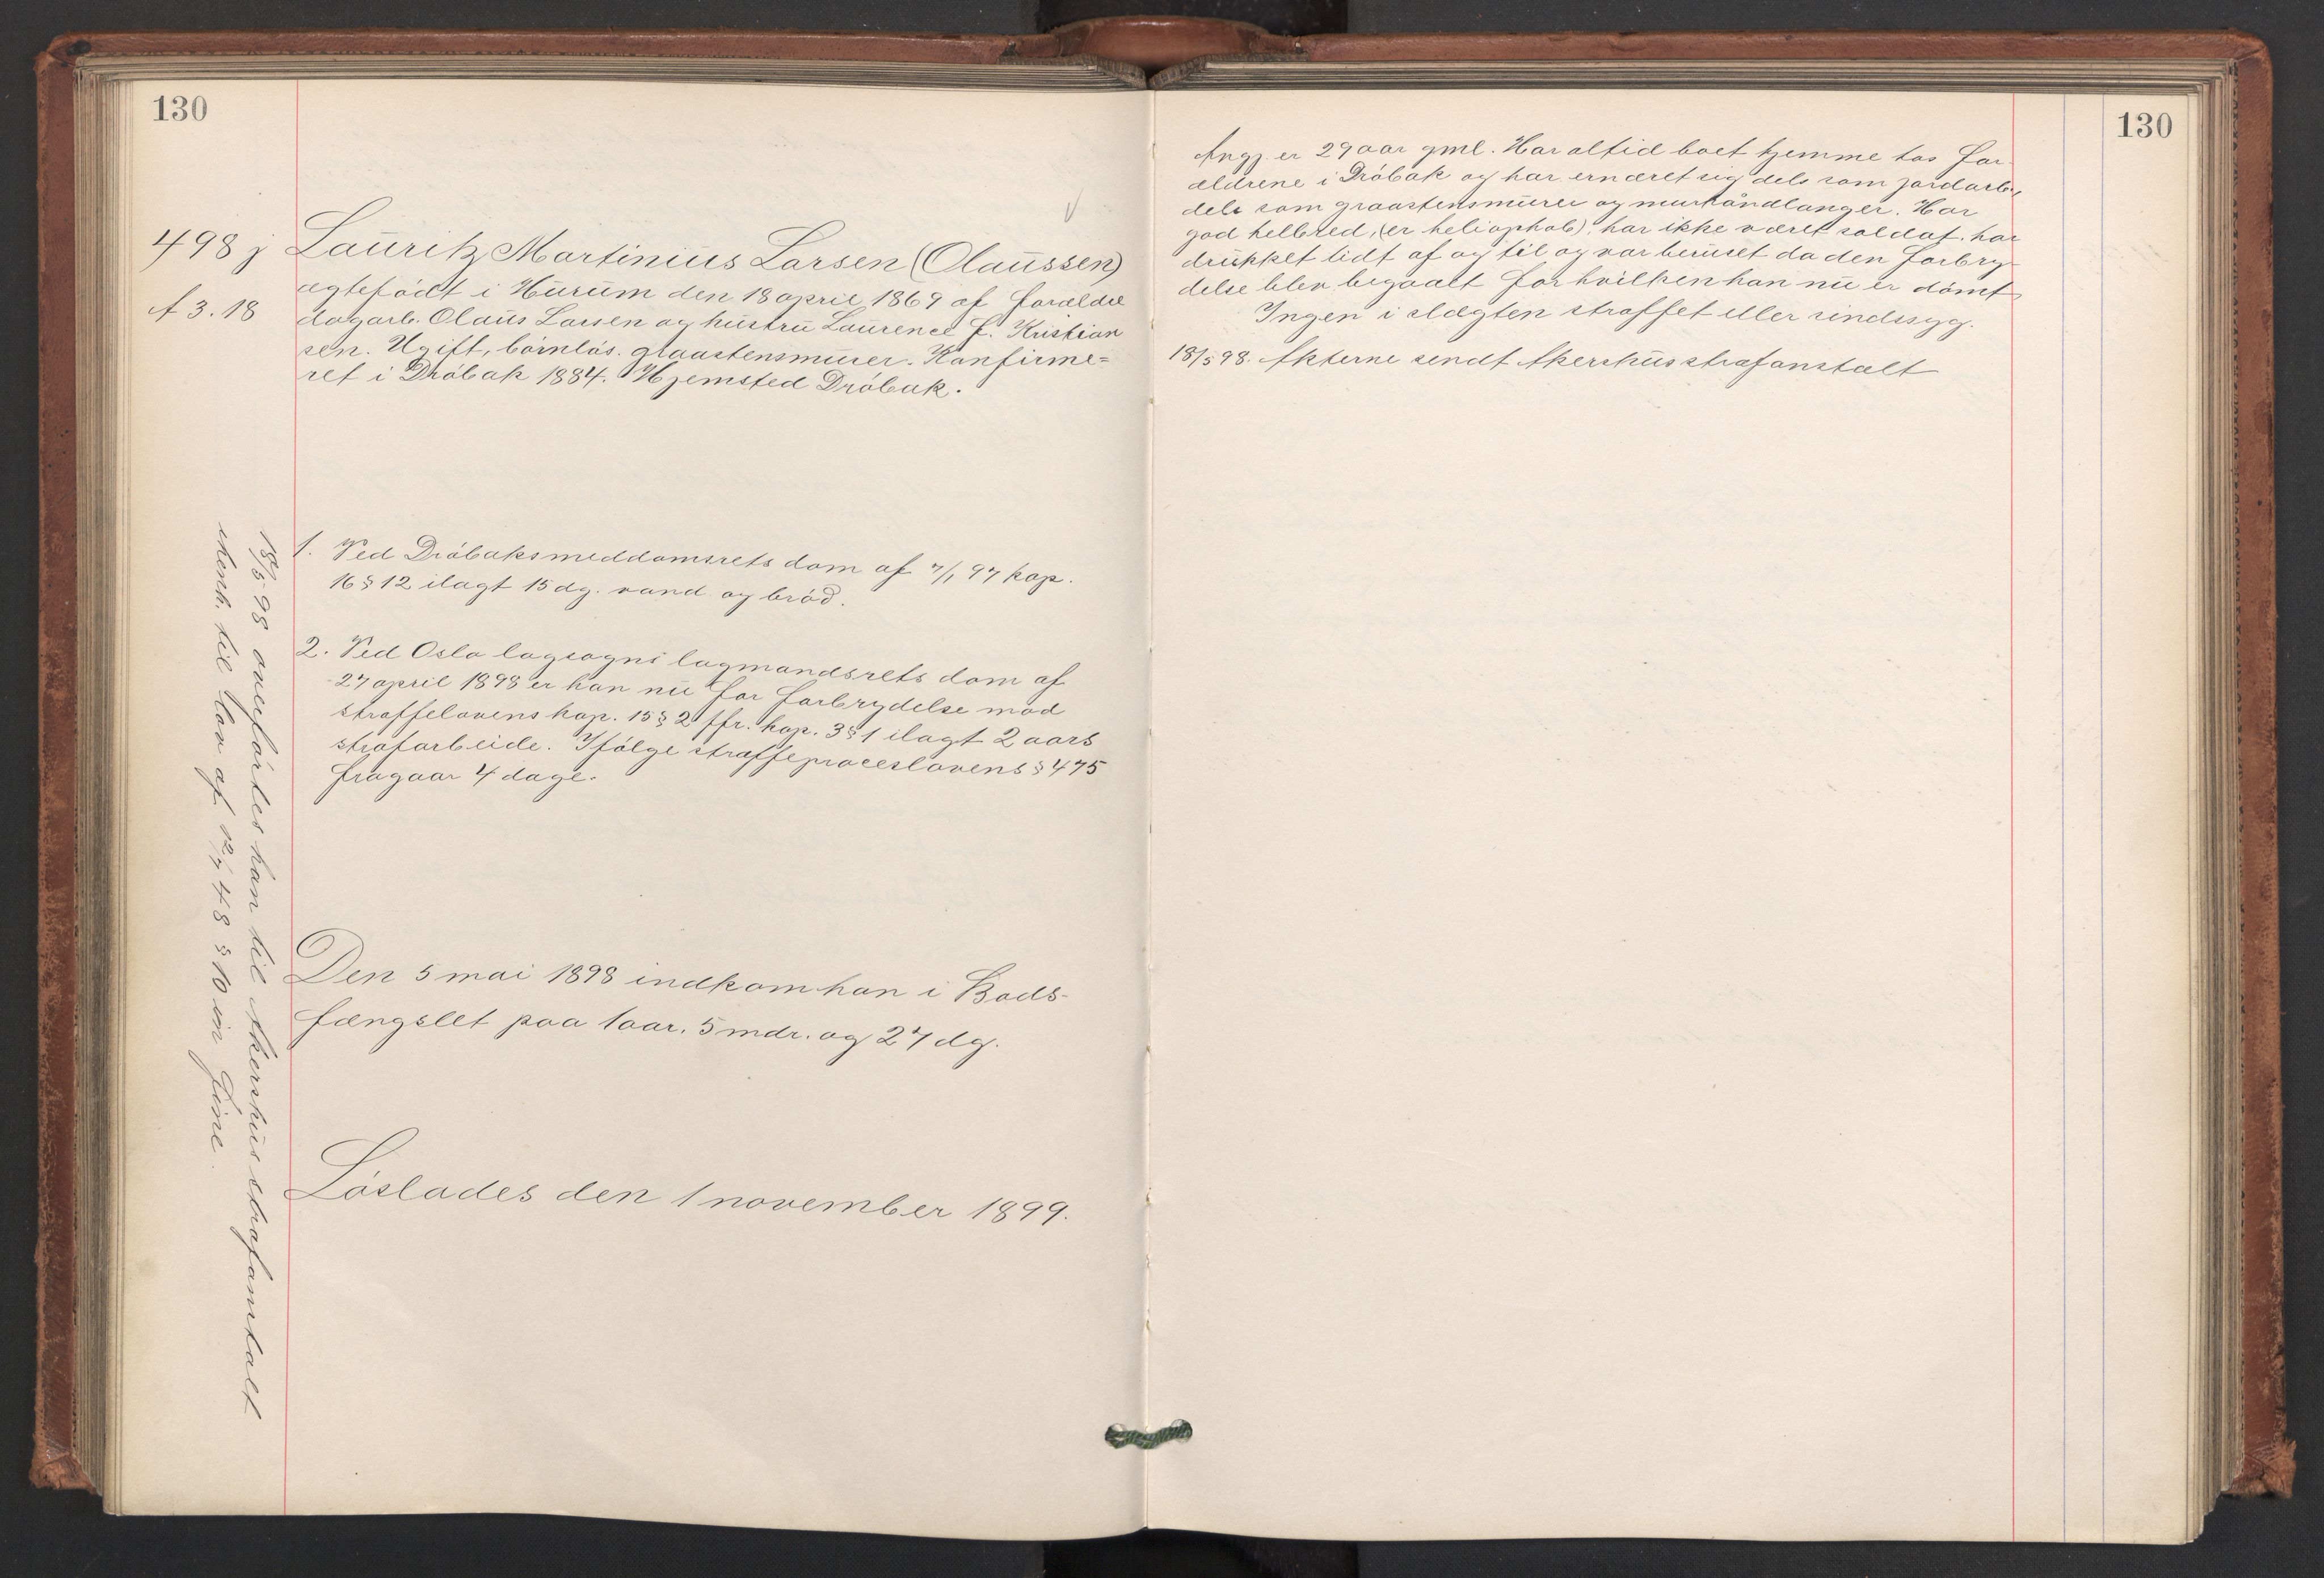 130
498 j Lauritz Martinius Larsen (Olaussen)
A 3. 18 ægtefødt i Hurum den 18 april 1869 af forældre
dagarb. Olaus Larsen og hustru Laurence f. Kristian
sen. Ugift, børnløs. graastensmurer. Konfirme=
ret i Drøbak 1884. Hjemsted Drøbak.
1. Ved Drøbaks meddomsrets dom af 7/1 97 kap.
16 § 12 ilagt 15 dg. vand og brød.
2. Ved Oslo lagsogns lagmandsrets dom af
27 april 1898 er han nu for forbrydelse mod
straffelovens kap. 15 § 2 jfr. kap. 3 § 1 ilagt 2 aars
strafarbeide. Ifølge straffeproceslovens § 475
fragaar 4 dage.
Den 5 mai 1898 indkom han i Bods-
fængslet paa 1 aar. 5 mdr. og 27 dg.
Løslades den 1 november 1899.
18/5 98 overførtes han til Akershus strafanstalt
i henh. til lov af 12/7 48 § 10 in fine.
130
Angj. er 29 aar gml. Har altid boet hjemme hos for
ældrene i Drøbak og har ernæret sig dels som jordarb.,
dels som graastensmurer og murhåndlanger. Har
god helbred, (er heliophob), har ikke været soldat. har
drukket lidt af og til og var beruset da den forbry-
delse blev begaaet for hvilken han nu er dømt
Ingen i slægten straffet eller sindssyg.
18/5 98. Akterne sendt Akershus strafanstalt